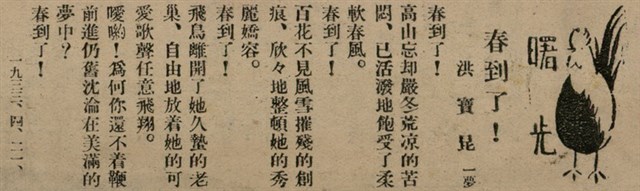 曙光
春到了！
洪寶昆 一夢
春到了！
高山忘却嚴冬荒凉的苦
悶、已活潑地飽受了柔
軟春風。
春到了！
百花不見風雪摧殘的創
痕、欣々地整頓她的秀
麗嬌容。
春到了！
飛鳥離開了她久蟄的老
巢、自由地放着她的可
愛歌聲任意飛翔。
噯喲！為何你還不着鞭
前進仍舊沈淪在美滿的
夢中？
春到了！
一九三六、四、二一、